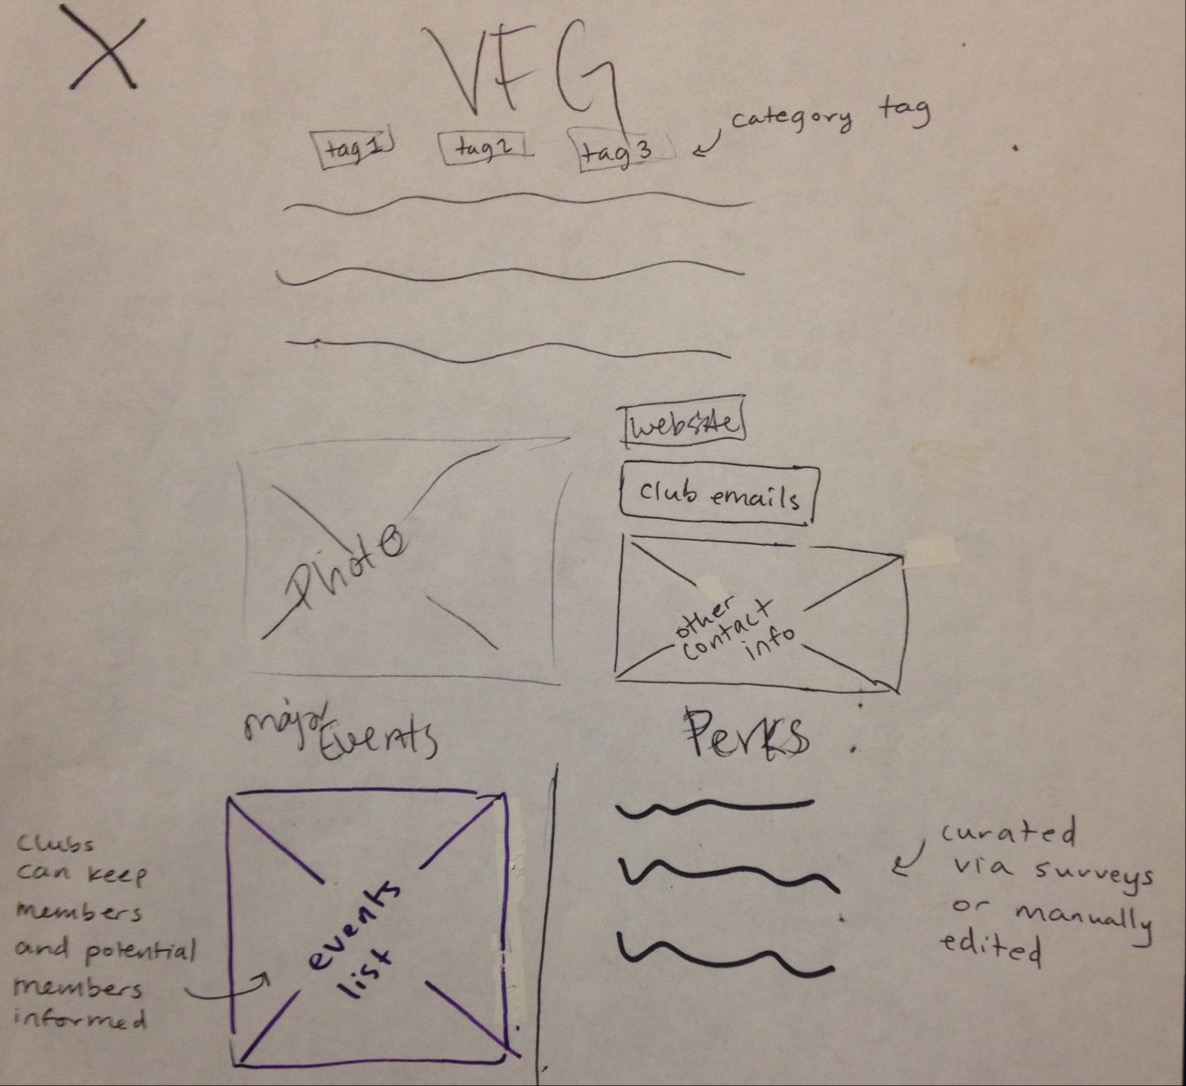 VFG
tag1 tag2 tag3
category tag
website
club emails
Photo
other
contact
info
major Events
Perks
clubs
can keep
members
and potential
members
informed
events
list
curated
via surveys
or manually
edited